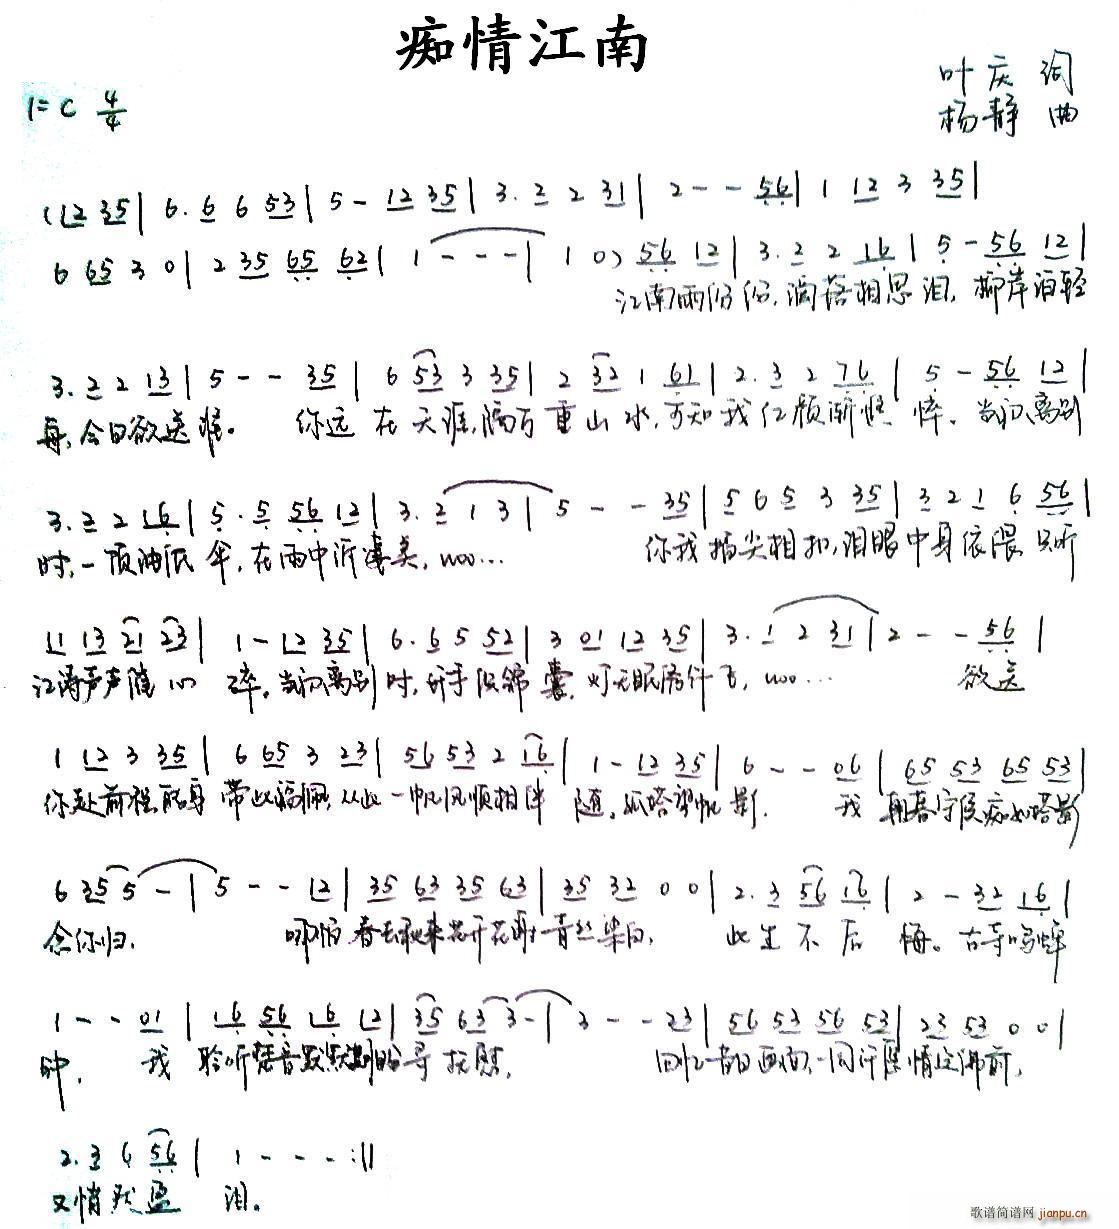 痴情江南
叶庆 词
1=C 4/4
杨静 曲
(12 35| 6. 6 6 53| 5 - 12 35| 3. 2 2 31| 2 - - 56| 1 12 3 35|
6 65 3 0| 2 35 65 62| 1 - - -| 1 0) 56 12| 3. 2 2 16| 5 - 56 12|
江南雨纷纷,滴落相思泪,柳岸泊轻
3. 2 2 13| 5 - - 35| 6 53 3 35| 2 32 1 61| 2. 3 2 76| 5 - 56 12|
今日欲送谁。 你远在天涯,隔万重山水,可知我红颜渐憔悴。当初离别
3. 2 2 16| 5. 5 56 12| 3. 2 1 3| 5 - - 35| 5 6 5 3 35| 3 2 1 6 56|
时,一顶油纸伞,在雨中诉凄美,woo... 你我指尖相扣,泪眼中身依偎 只听
11 13 21 23| 1 - 12 35| 6. 6 5 52| 3 01 12 35| 3. 1 2 31| 2 - - 56|
江涛声声随心碎,当初离别时,纤手织锦囊, woo... 欲送
1 12 3 35| 6 65 3 23| 56 53 2 16| 1 - 12 35| 6 - - 06| 65 53 65 53|
你赴前程 带此福佩,从此一帆风顺相伴随,孤塔望帆影. 我朝暮守候痴如塔影
6 35 5 -| 5 - - 12| 35 63 35 63| 35 32 0 0| 2. 3 56 16| 2 - 32 16|
念你归. 哪怕春去秋来花开花谢青丝染白, 此生不后悔。古寺鸣
1 - - 01| 16 56 16 12| 35 63 3 -| 3 - - 23| 56 53 56 53| 23 53 0 0|
钟, 我聆听梵音默默 寻抚慰, 回忆昔日画面,一同许愿情定佛前,
2. 3 6 56| 1 - - - :||
又悄然盈泪。
歌谱简谱网
jianpu.cn